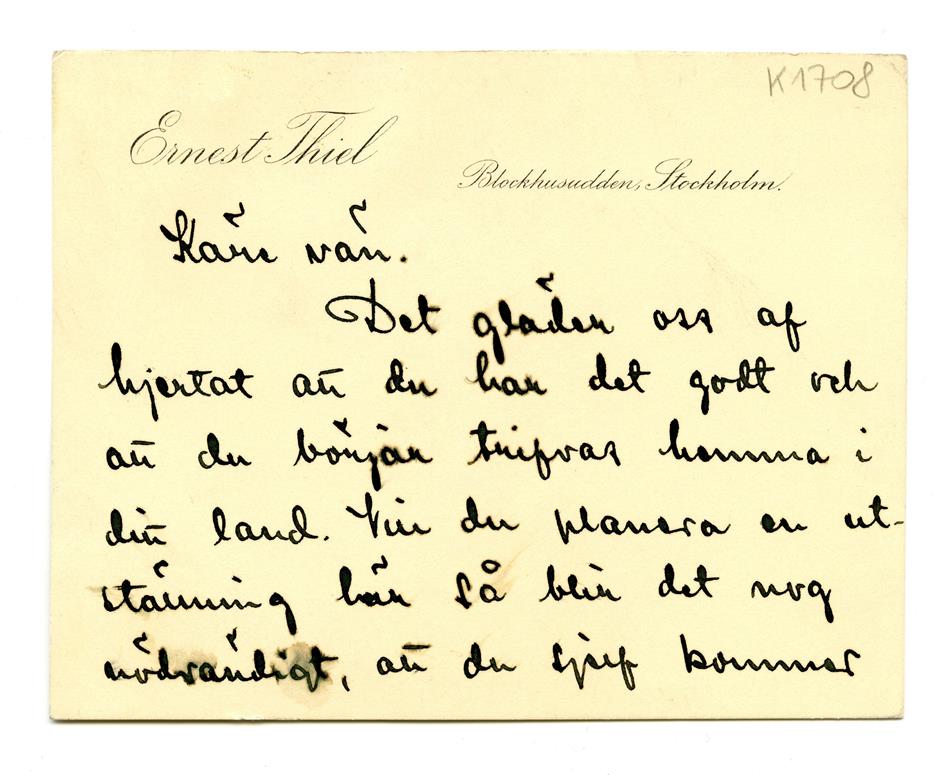 K1708
Ernest Thiel
Blockhusudden, Stockholm.
Käre vän.
Det gläder oss af
hjertat att du har det godt och
att du börjar trifvas hemma i
ditt land. Vill du planera en ut-
ställning här så blir det nog
nödvändigt, att du sjelf kommer